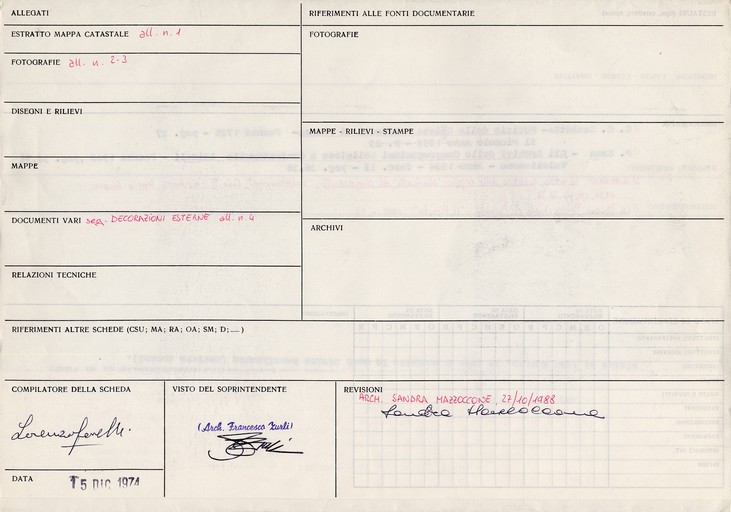 ALLEGATI
ESTRATTO MAPPA CATASTALE all. n. 1
FOTOGRAFIE all. n. 2-3
DISEGNI E RILIEVI
MAPPE
DOCUMENTI VARI seg. DECORAZIONI ESTERNE all. n. 4
RELAZIONI TECNICHE
RIFERIMENTI ALLE FONTI DOCUMENTARIE
FOTOGRAFIE
MAPPE - RILIEVI - STAMPE
ARCHIVI
RIFERIMENTI ALTRE SCHEDE (CSU; MA; RA; OA; SM; D; ..... )
COMPILATORE DELLA SCHEDA
Lorenzo
DATA
15 DIC 1974
VISTO DEL SOPRINTENDENTE
(Arch. Francesco Zurli)
REVISIONI
ARCH. SANDRA MAZZOCCONE, 27/10/1988
Sandra Mazzoccone